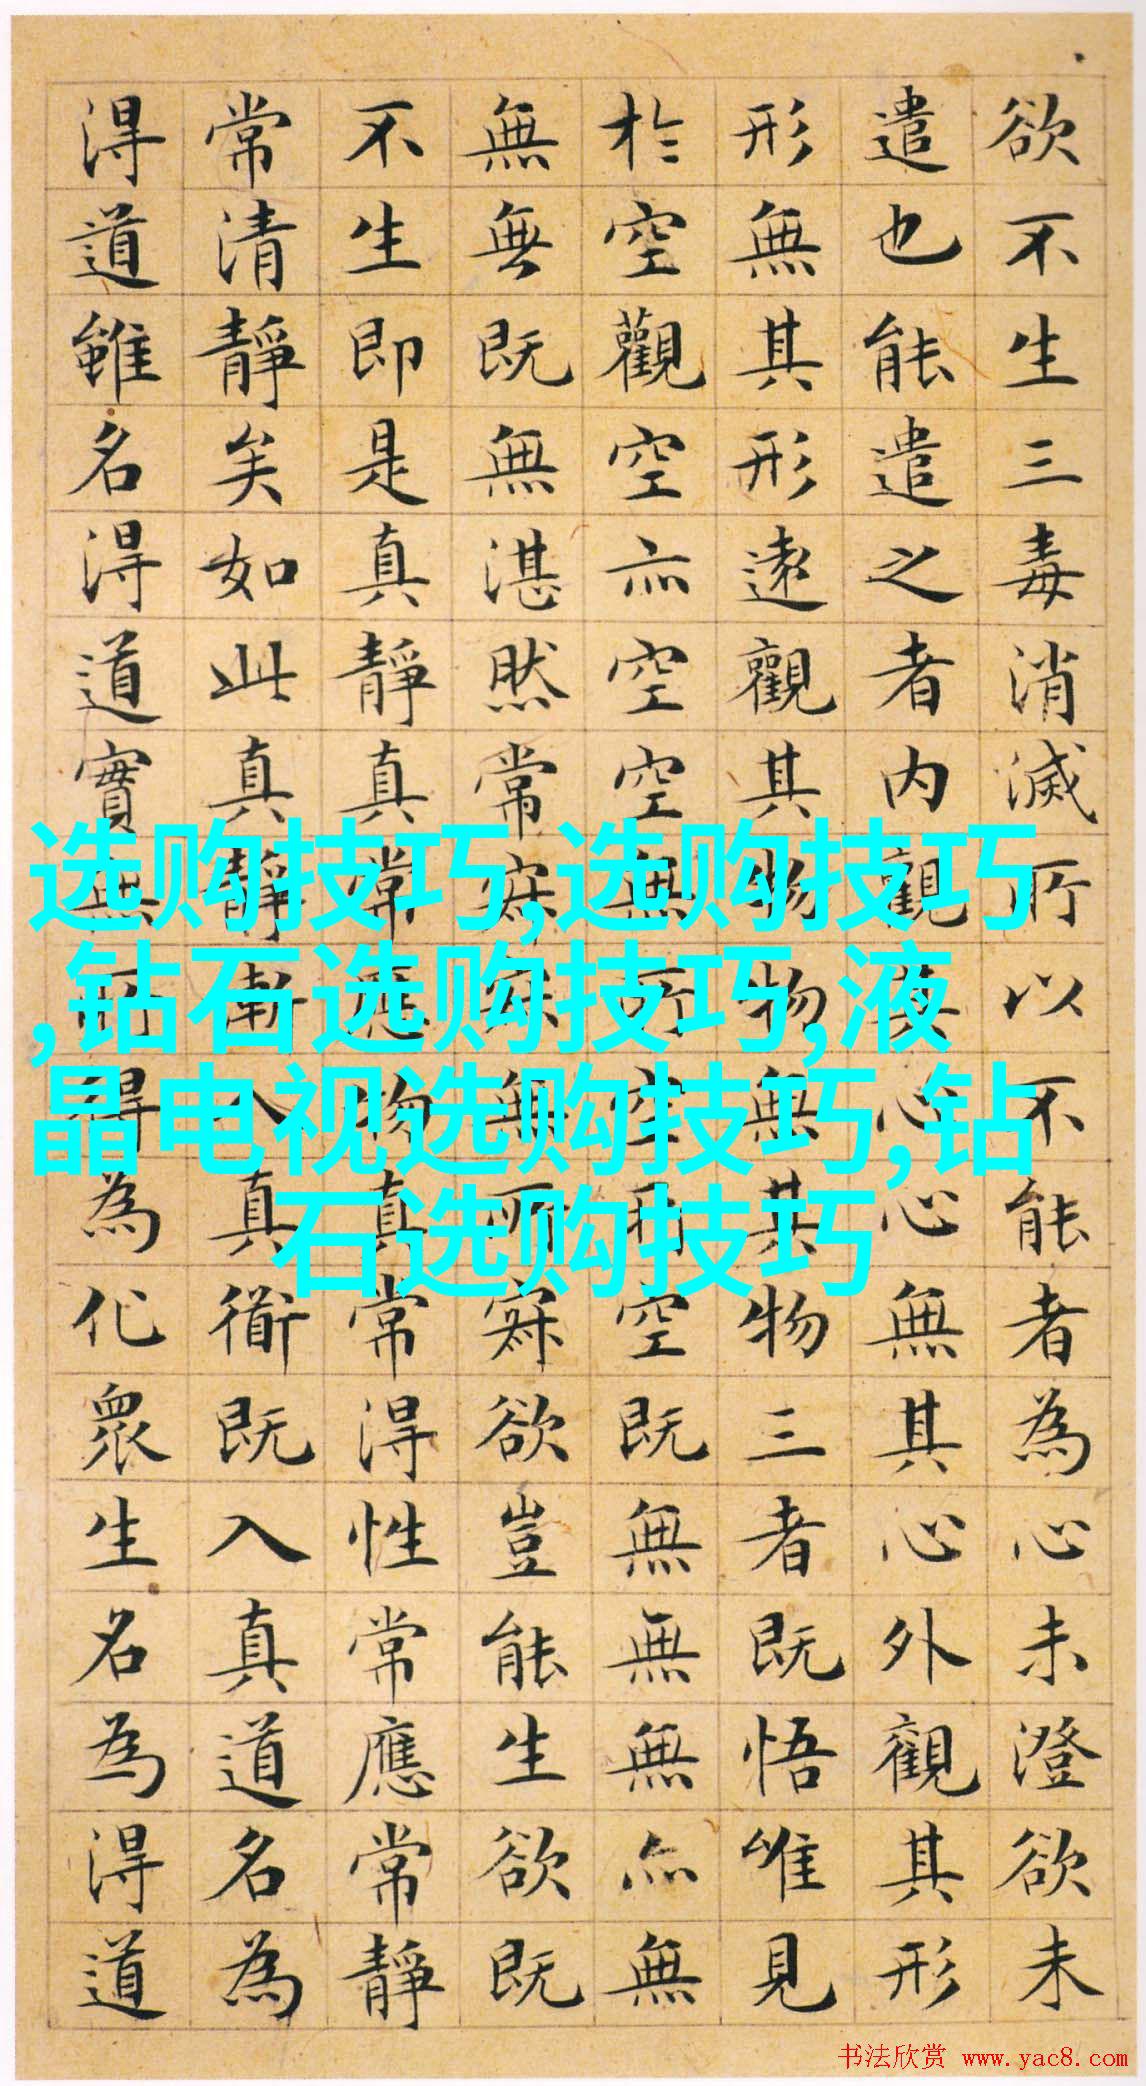 欲不生三毒消滅所以不能者為心未澄欲未
遣也能遣之者内觀其心心無其心外觀其形
形無其形遠觀其物物無其物三者既悟唯見
於空觀空亦空空無所空所空既無無無亦無
無無既無湛然常寂寂無所寂欲豈能生欲既
不生即是真靜真常應物真常得性常應常靜
常清靜矣如此真靜漸入真衜既入真道名為
得道雖名得道實無所得為化眾生名為得道
选购技巧,选购技巧
,钻石选购技巧,液
晶电视选购技巧,钻
石选购技巧
书法欣赏 www.yac8.com